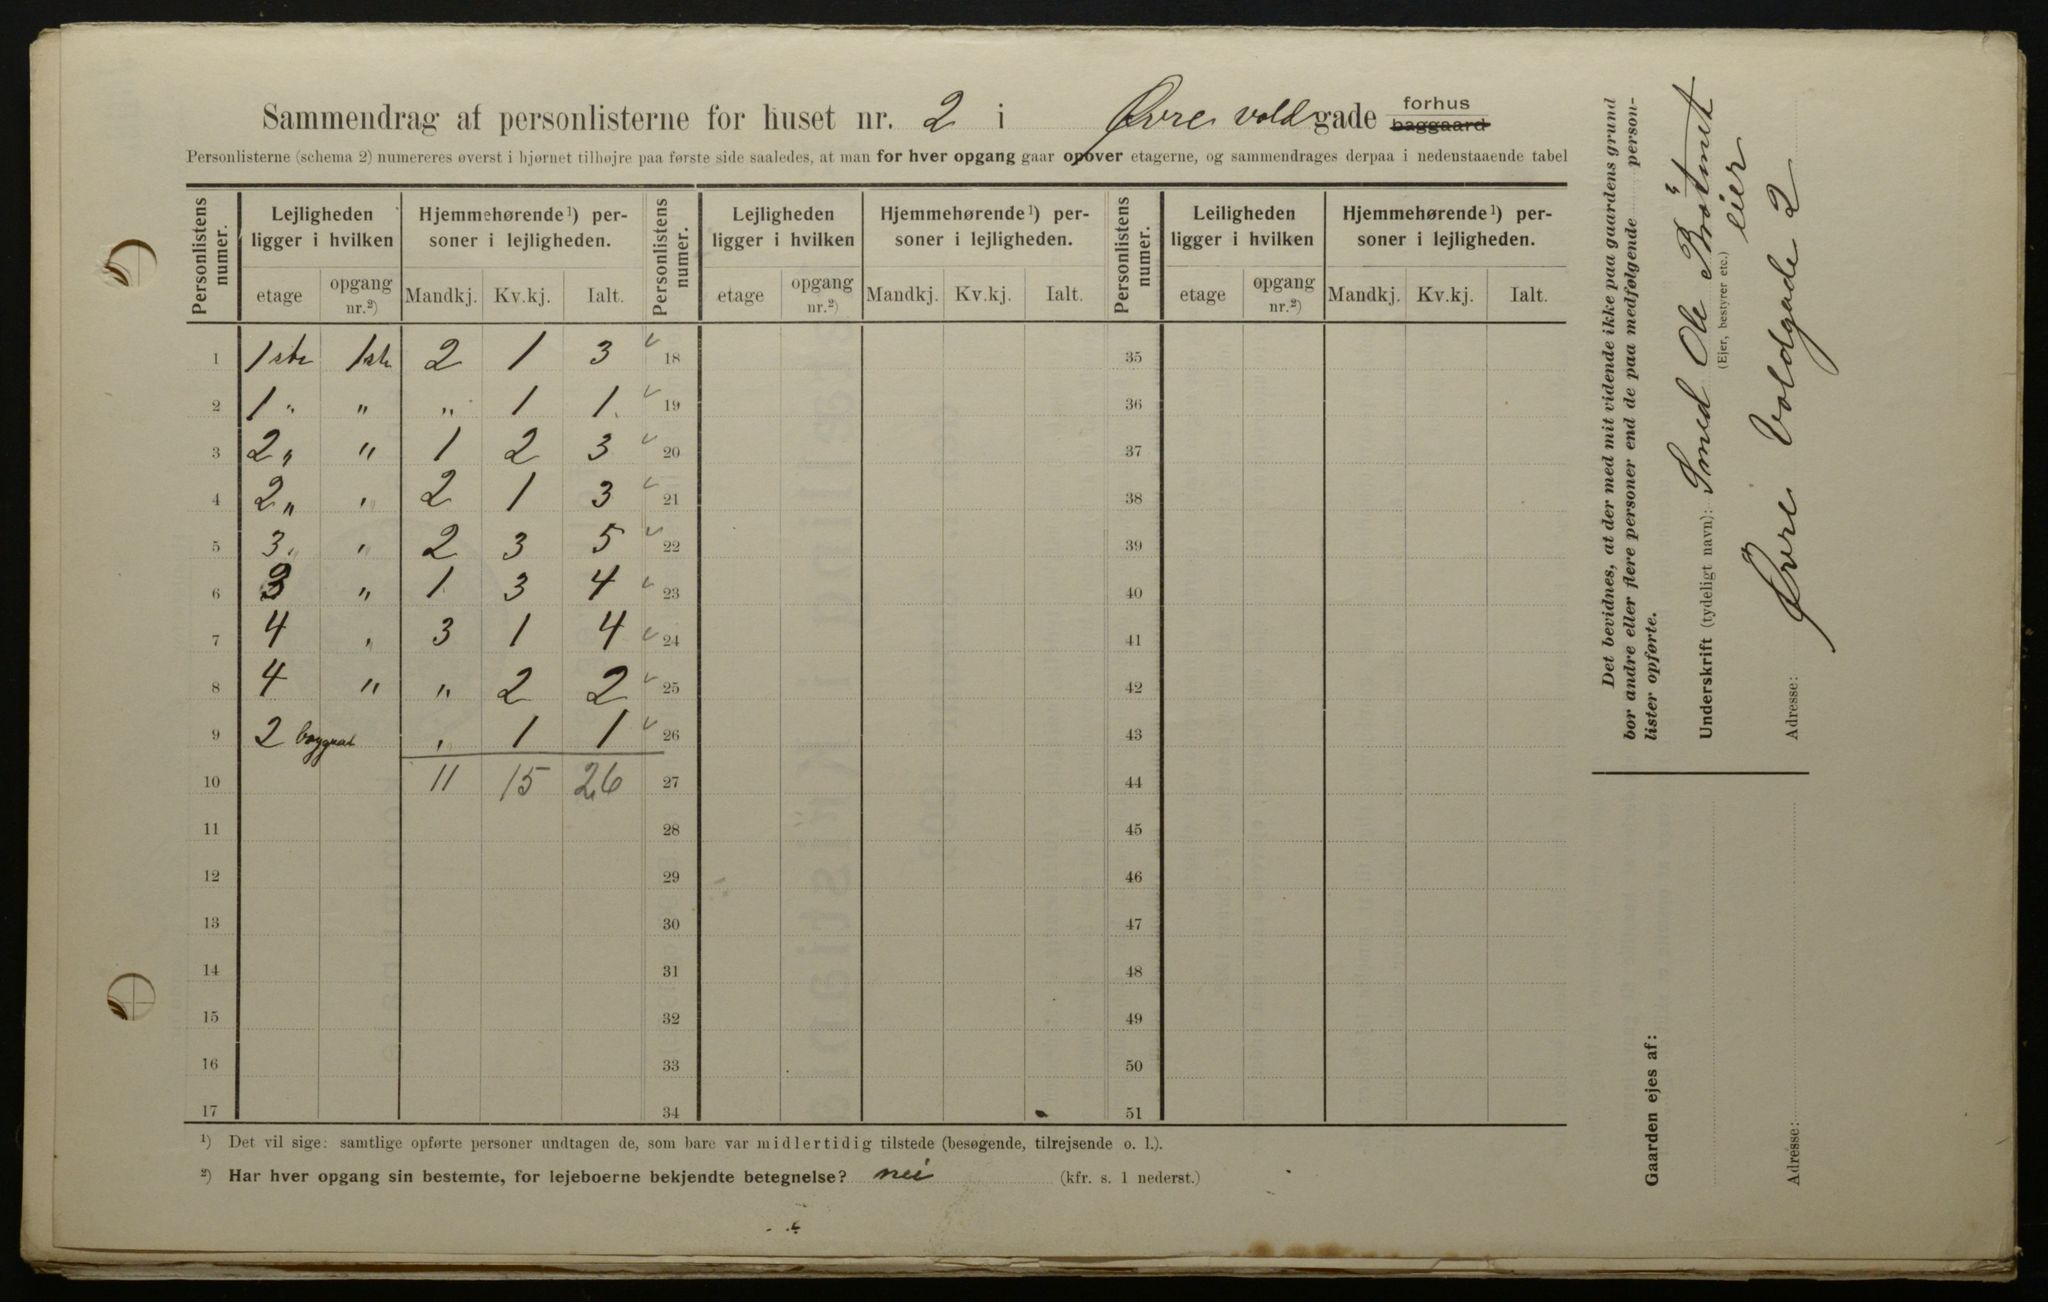 Sammendrag af personlisterne for huset nr. 2 i Øvre voldgade forhus baggaard
Personlisterne (schema 2) numereres øverst i hjørnet tilhøjre paa første side saaledes, at man for hver opgang gaar opover etagerne, og sammendrages derpaa i nedenstaaende tabel
Personlistens numer. Lejligheden ligger i hvilken Hjemmehørende¹) personer i lejligheden. Personlistens numer. Lejligheden ligger i hvilken Hjemmehørende¹) personer i lejligheden. Personlistens numer. Leiligheden ligger i hvilken Hjemmehørende¹) personer i lejligheden.
etage opgang nr.²) Mandkj. Kv.kj. Ialt. etage opgang nr.²) Mandkj. Kv.kj. Ialt. etage opgang nr.²) Mandkj. Kv.kj. Ialt.
1 1ste 1ste 2 1 3 18 35
2 1 " " " 1 1 19 36
3 2 " " 1 2 3 20 37
4 2 " " 2 1 3 21 38
5 3 " " 2 3 5 22 39
6 3 " 1 3 4 23 40
7 4 " 3 1 4 24 41
8 4 " " 2 2 25 42
9 2 " 1 1 26 43
10 11 15 26 27 44
11 28 45
12 29 46
13 30 47
14 31 48
15 32 49
16 33 50
17 34 51
¹) Det vil sige: samtlige opførte personer undtagen de, som bare var midlertidig tilstede (besøgende, tilrejsende o. l.).
²) Har hver opgang sin bestemte, for lejeboerne bekjendte betegnelse? nei (kfr. s. 1 nederst.)
Det bevidnes, at der med mit vidende ikke paa gaardens grund
bor andre eller flere personer end de paa medfølgende person-
lister opførte.
Underskrift (tydeligt navn): Smed Ole
eier
(Ejer, bestyrer etc.)
Adresse: Øvre Voldgade 2
Gaarden ejes af:
Adresse: